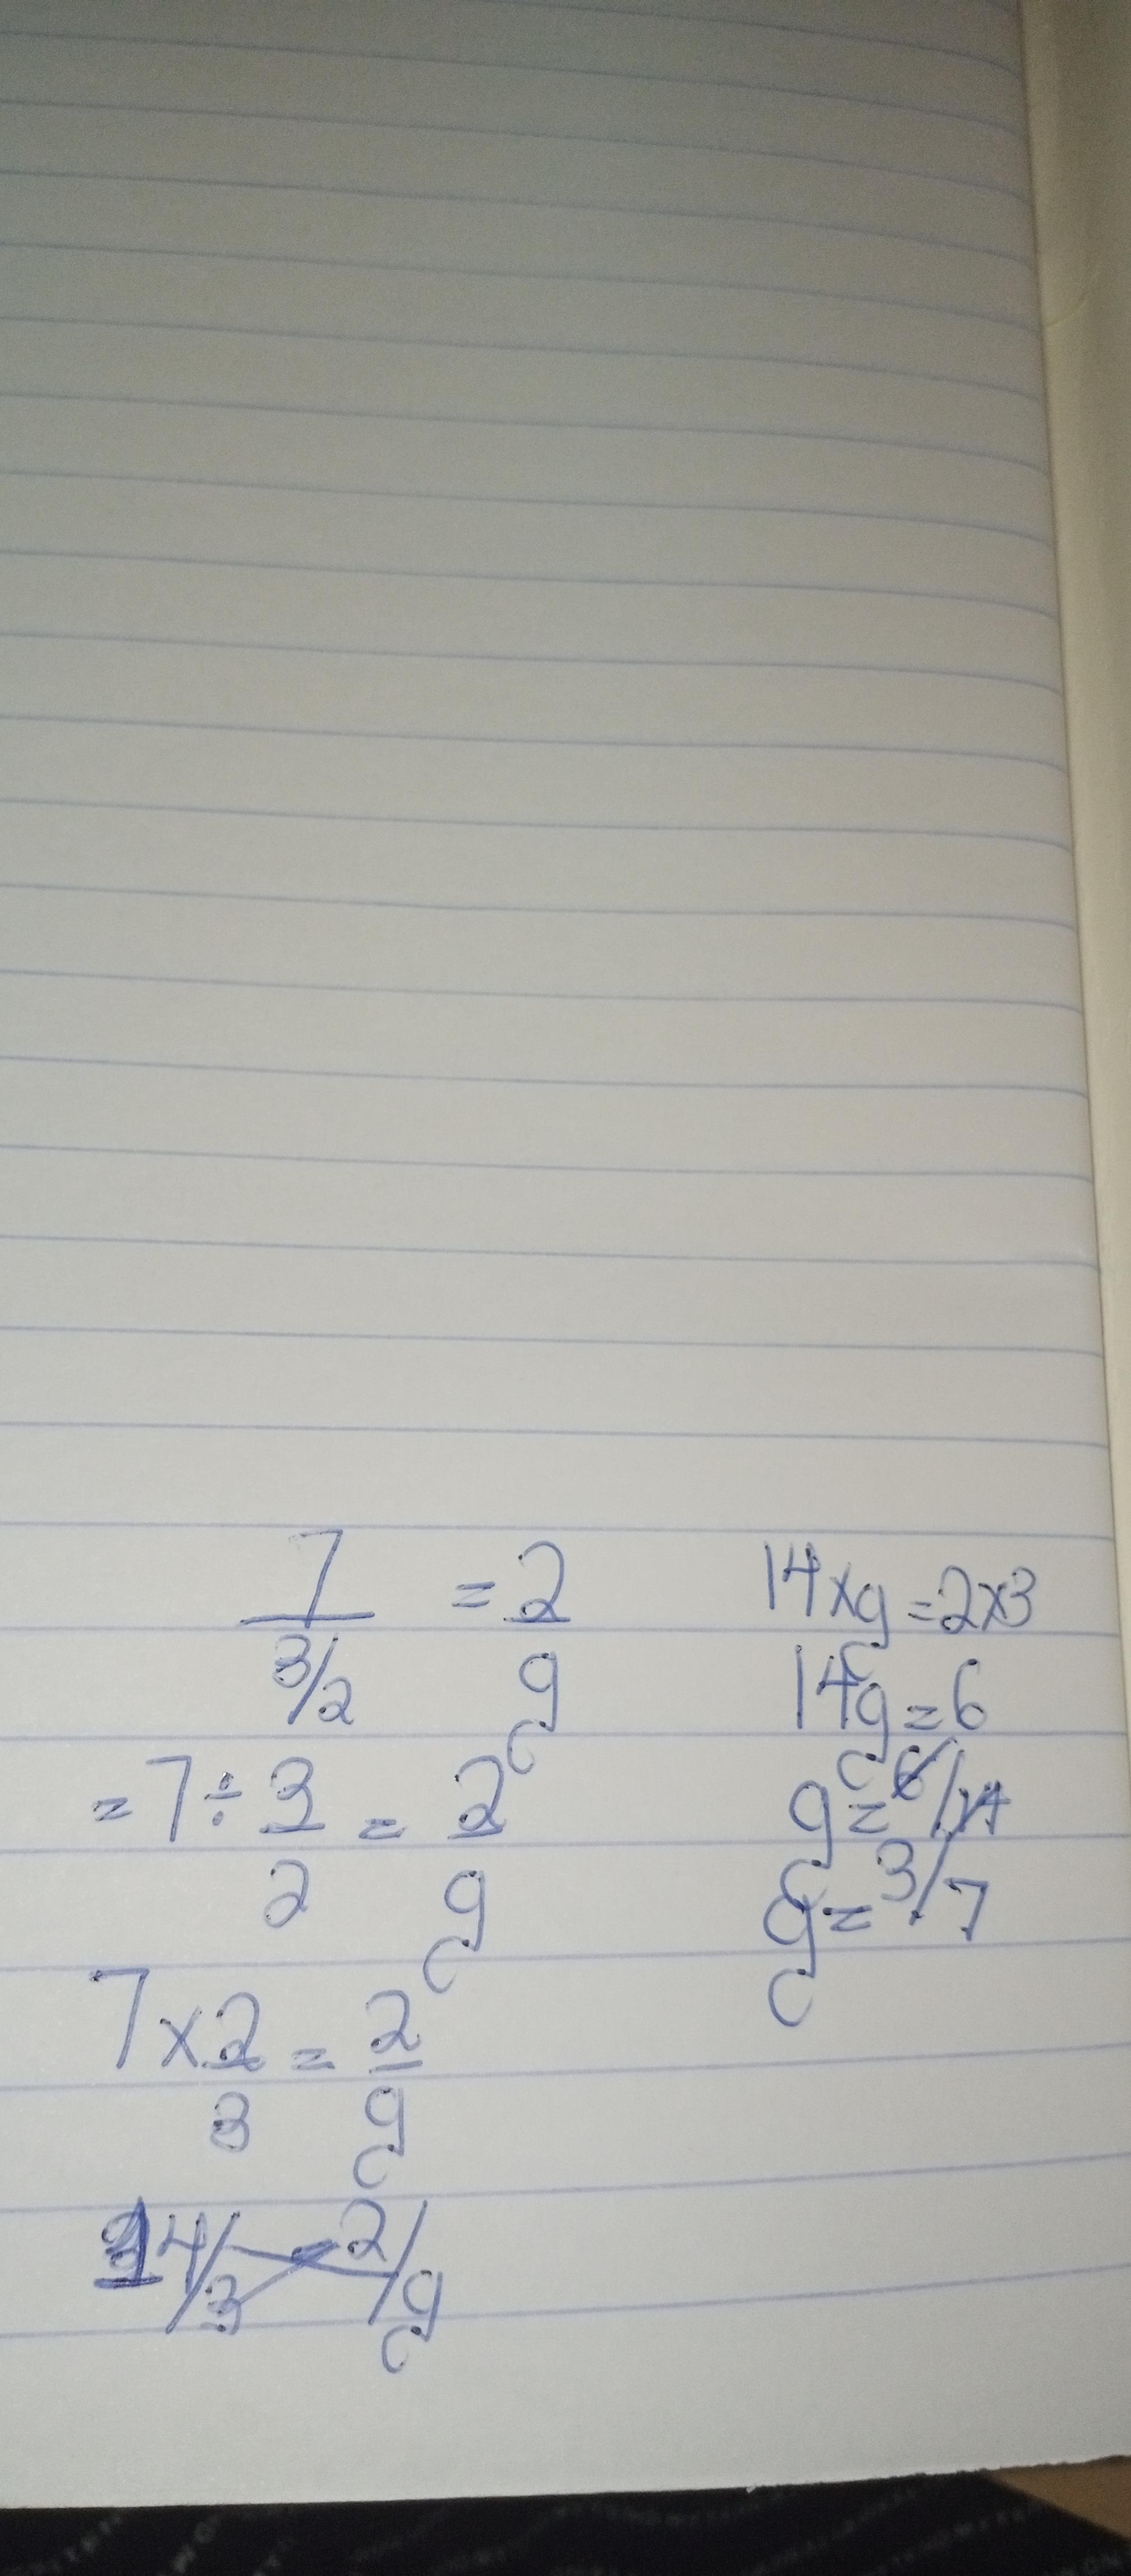 7/(3/2) = 2/g
= 7 ÷ 3/2 = 2/g
7 × 2/3 = 2/g
14/3 2/g
14×g = 2×3
14g = 6
g = 6/14
g = 3/7